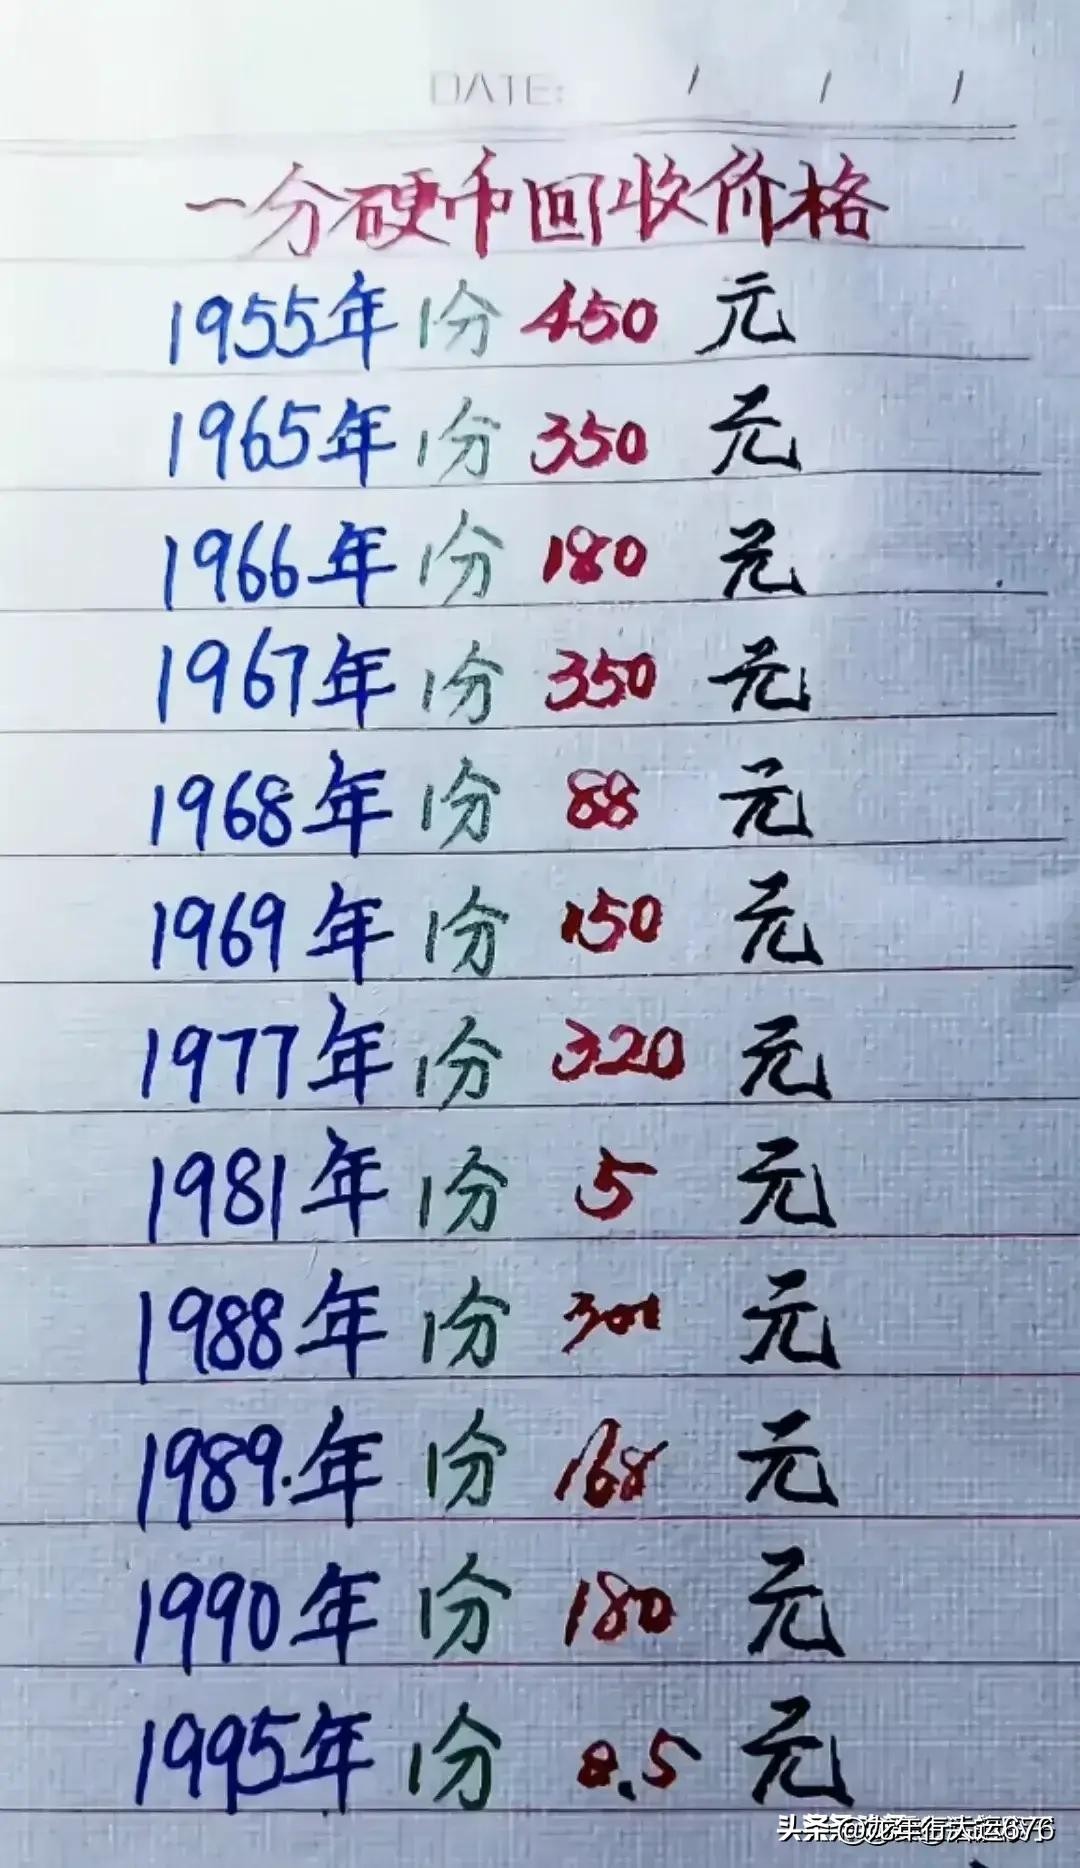 DATE: / / /
一分硬币回收价格
1955年 1分 450 元
1965年 1分 350 元
1966年 1分 180 元
1967年 1分 350 元
1968年 1分 88 元
1969年 1分 150 元
1977年 1分 320 元
1981年 1分 5 元
1988年 1分 元
1989.年 1分 168 元
1990年 1分 180 元
1995年 1分 0.5 元
头条 @龙年行大运676